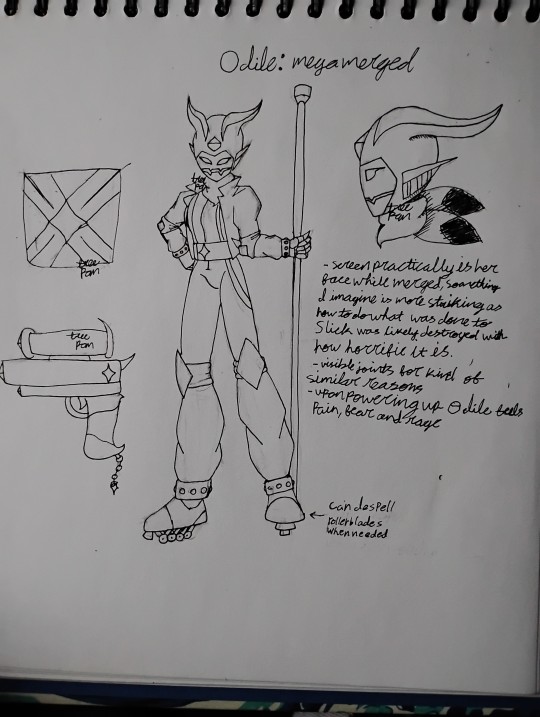 Odile: megamerged
tree
Pam
tree
Pam
tree
Pam
tree
Pam
- screen practically is her
face while merged, something
I imagine is more striking as
how to do what was done to
Slick was likely destroyed with
how horrific it is.
- visible joints for kind of
similar reasons
- upon powering up Odile feels
Pain, fear and rage
can despell
rollerblades
when needed